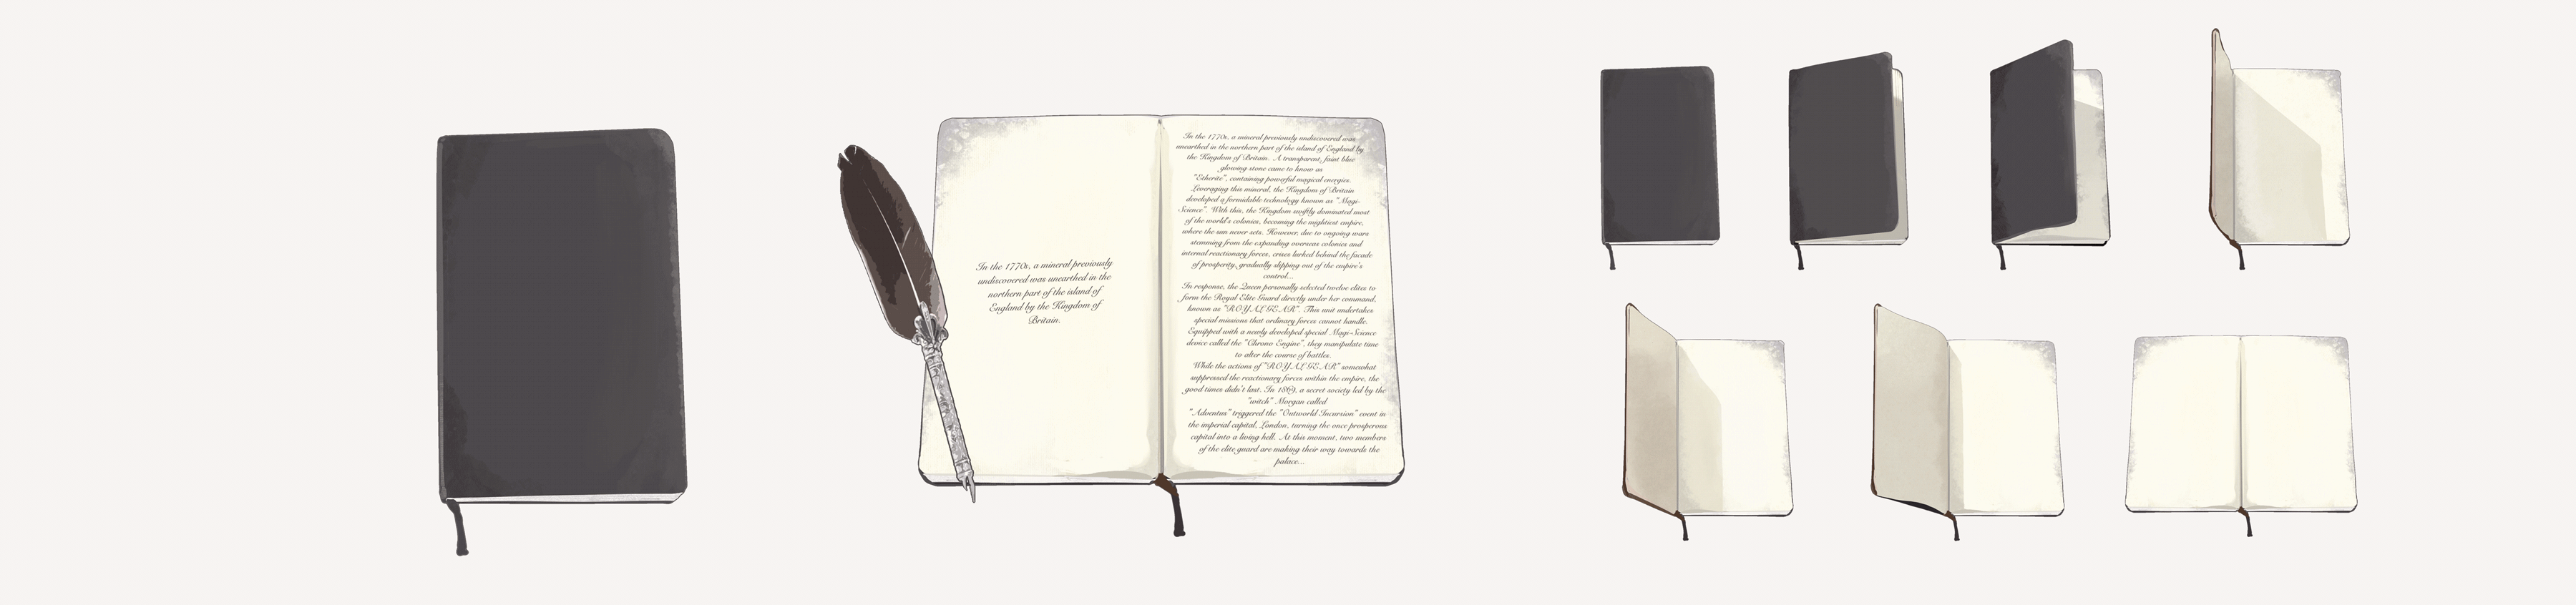 In the 1770s, a mineral previously
undiscovered was unearthed in the
northern part of the island of
England by the Kingdom of
Britain.
In the 1770s, a mineral previously undiscovered was
unearthed in the northern part of the island of England by
the Kingdom of Britain. A transparent, faint blue
glowing stone came to know as
"Etherite", containing powerful magical energies.
Leveraging this mineral, the Kingdom of Britain
developed a formidable technology known as "Magi-
Science". With this, the Kingdom swiftly dominated most
of the world's colonies, becoming the mightiest empire,
where the sun never sets. However, due to ongoing wars
stemming from the expanding overseas colonies and
internal reactionary forces, crises lurked behind the facade
of prosperity, gradually slipping out of the empire's
control...
In response, the Queen personally selected twelve elites to
form the Royal Elite Guard directly under her command,
known as "ROYALGEAR". This unit undertakes
special missions that ordinary forces cannot handle.
Equipped with a newly developed special Magi-Science
device called the "Chrono Engine", they manipulate time
to alter the course of battles.
While the actions of "ROYALGEAR" somewhat
suppressed the reactionary forces within the empire, the
good times didn't last. In 1869, a secret society led by the
"witch" Morgan called
"Adventus" triggered the "Outworld Incursion" event in
the imperial capital, London, turning the once prosperous
capital into a living hell. At this moment, two members
of the elite guard are making their way towards the
palace...